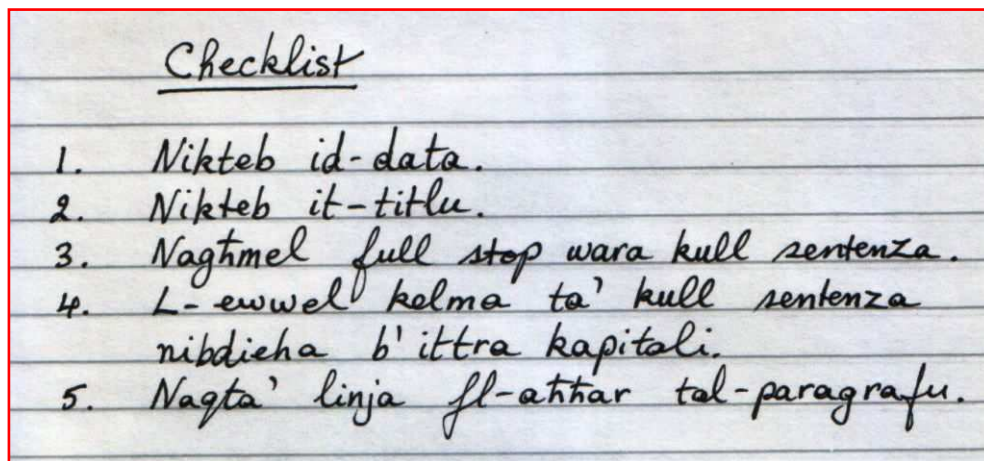 Checklist
1. Nikteb id-data.
2. Nikteb it-titlu.
3. Nagħmel full stop wara kull sentenza.
4. L-ewwel kelma ta' kull sentenza
nibdieha b' ittra kapitali.
5. Naqta' linja fl-aħħar tal-paragrafu.